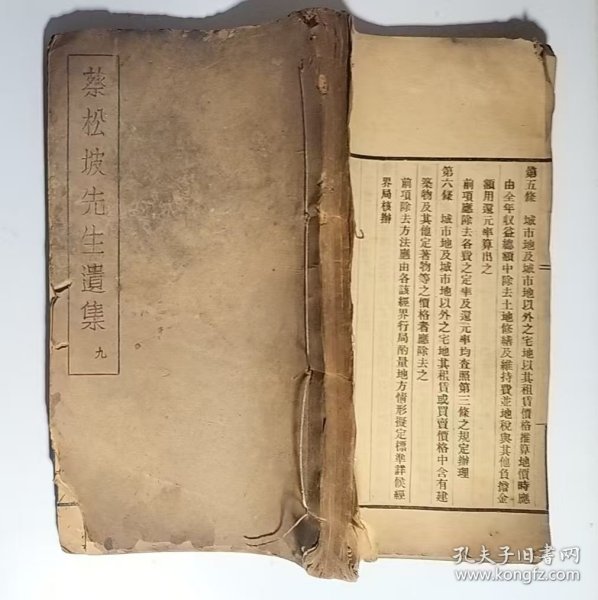 蔡松坡先生遺集 九
第五條 城市地及城市地以外之宅地以其租賃價格推算地價時應
由全年収益總額中除去土地修繕及維持費並地稅與其他負擔金
額用還元率算出之
前項應除去各費之定率及還元率均查照第三條之規定辦理
第六條 城市地及城市地以外之宅地其租賃或買賣價格中含有建
築物及其他定著物等之價格者應除去之
前項除去方法應由各該經界行局酌量地方情形擬定標準詳候經
界局核辦
孔夫子旧书网
www.kongfz.com